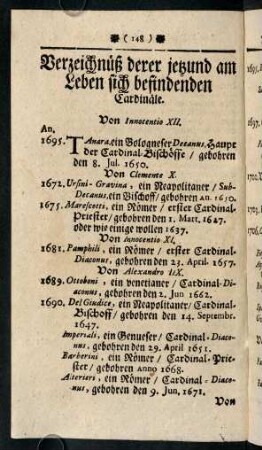 ( 148 )
Verzeichnüß derer jetzund am
Leben sich befindenden
Cardinäle.
Von Innocentio XII.
An.
1695. Tanara, ein Bologneser Decanus, Haupt
der Cardinal-Bischöffe / gebohren
den 8. Jul. 1650.
Von Clemente X.
1672. Ursini-Gravina, ein Neapolitaner / Sub-
Decanus, ein Bischoff / gebohren An. 1650.
1675. Marescotti, ein Römer / erster Cardinal-
Priester / gebohren den 1. Mart. 1627.
oder wie einige wollen 1637.
Von Innocentio XI.
1681. Pamphili, ein Römer / erster Cardinal-
Diaconus, gebohren den 23. April. 1657.
Von Alexandro IIX.
1689. Ottoboni, ein Venetianer / Cardinal-Di-
aconus, gebohren den 2. Jun 1662.
1690. Del Giudice, ein Neapolitaner / Cardinal-
Bischoff / gebohren den 14. Septembr.
1647.
Imperiali, ein Genueser / Cardinal-Diaco-
nus, gebohren den 29. April 1651.
Barberini, ein Römer / Cardinal-Prie-
ster / gebohren Anno 1668.
Alterieri, ein Römer / Cardinal-Diaco-
nus, gebohren den 9. Jun. 1671.
Von